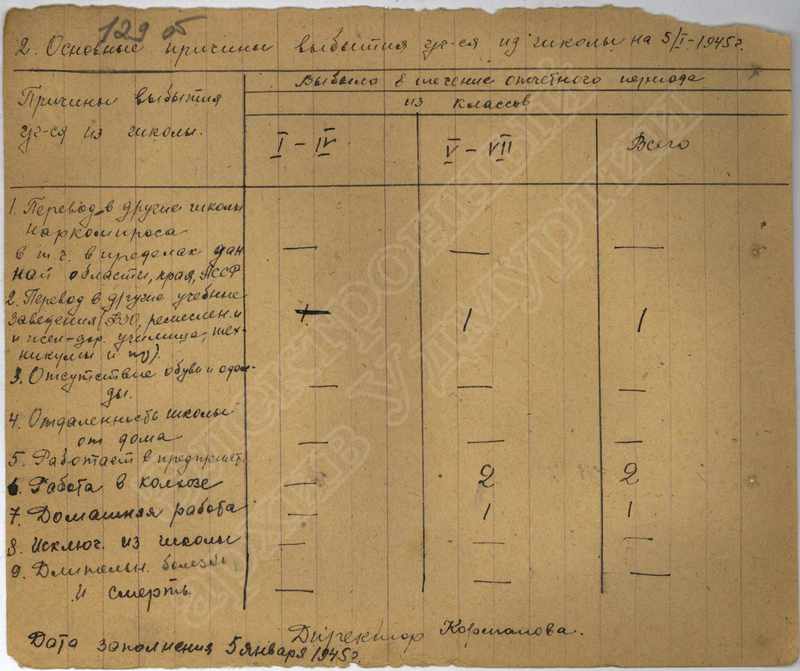 129 об
2. Основные причины выбытия уч-ся из школы на 5/I-1945 г.
Причины выбытия
уч-ся из школы.
Выбыло в течение отчетного периода
из классов
I – IV
V – VII
Всего
1. Перевод в другие школы
наркомпроса
в т.ч. в пределах дан
ной области, края, АССР
— — —
2. Перевод в другие учебные
заведения (ФЗО, ремеслен. и
и жел-дор. училища, тех-
никумы и пр).
— 1 1
3. Отсутствие обуви и одеж-
ды.
— — —
4. Отдаленность школы
от дома
— — —
5. Работает в предприят.
6. Работа в колхозе
— 2 2
7. Домашняя работа
— 1 1
8. Исключ. из школы
— — —
9. Длительн. болезнь
и смерть.
— — —
Директор
Дата заполнения 5 января 1945 г.
Электронный
архив Удмуртии